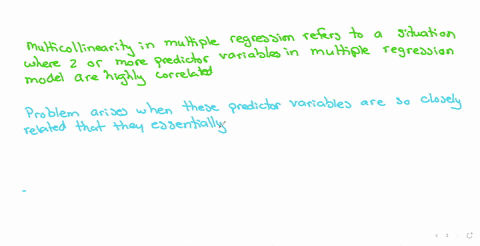 Multicollinearity in multiple regression refers to a situation
where 2 or more predictor variables in multiple regression
model are highly correlated
Problem arises when these predictor variables are so closely
related that they essentially